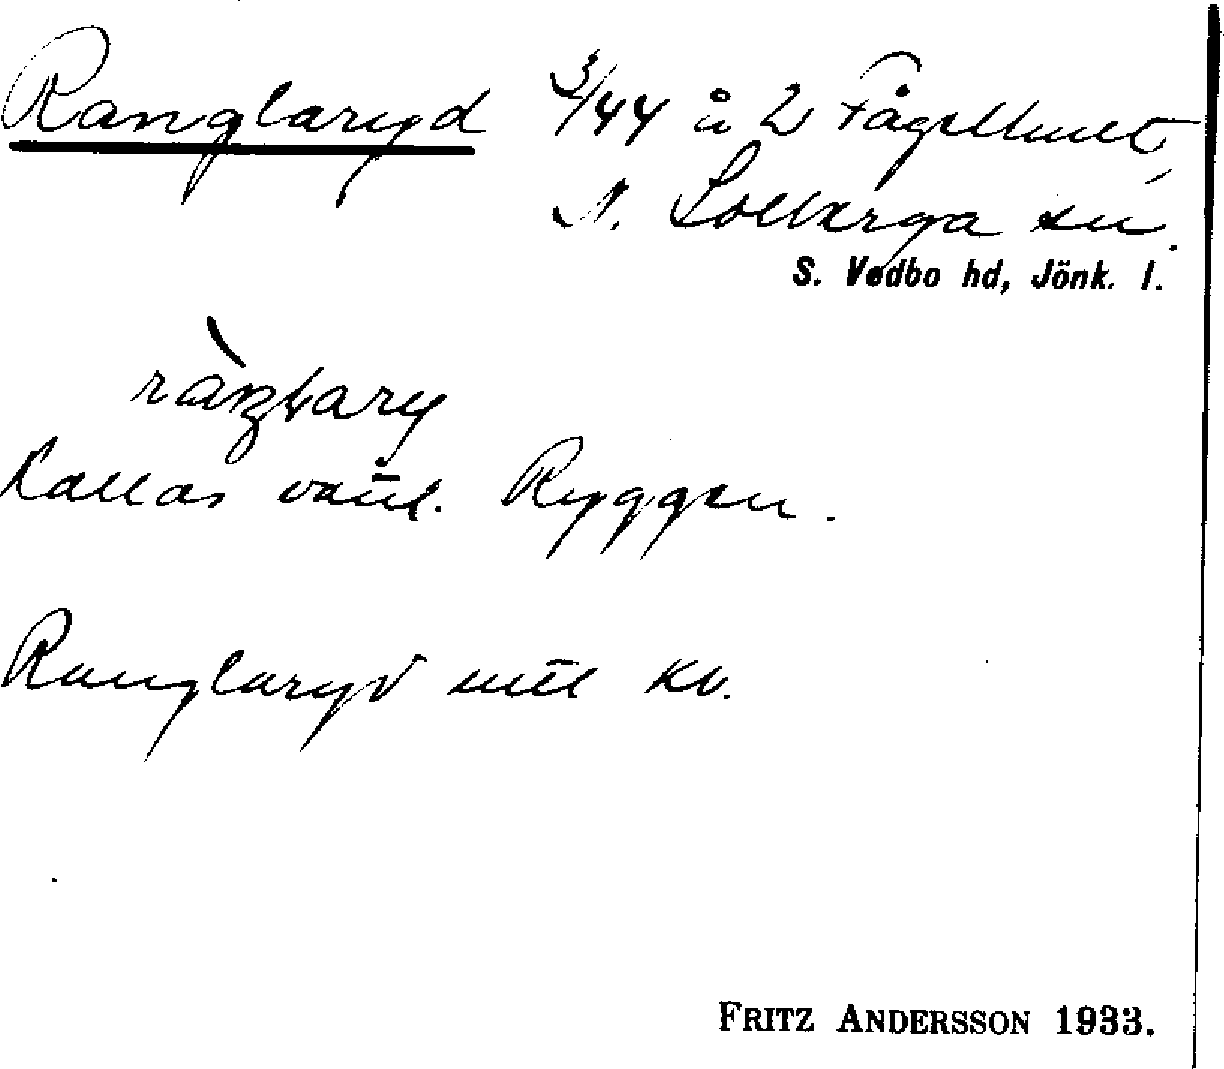 Ranglaryd 3/44 å 2 Fågelhult,
N. Solberga sn.
S. Vedbo hd, Jönk. l.
Kallas vanl. Ryggen.
Ranglaryd
FRITZ ANDERSSON 1933.